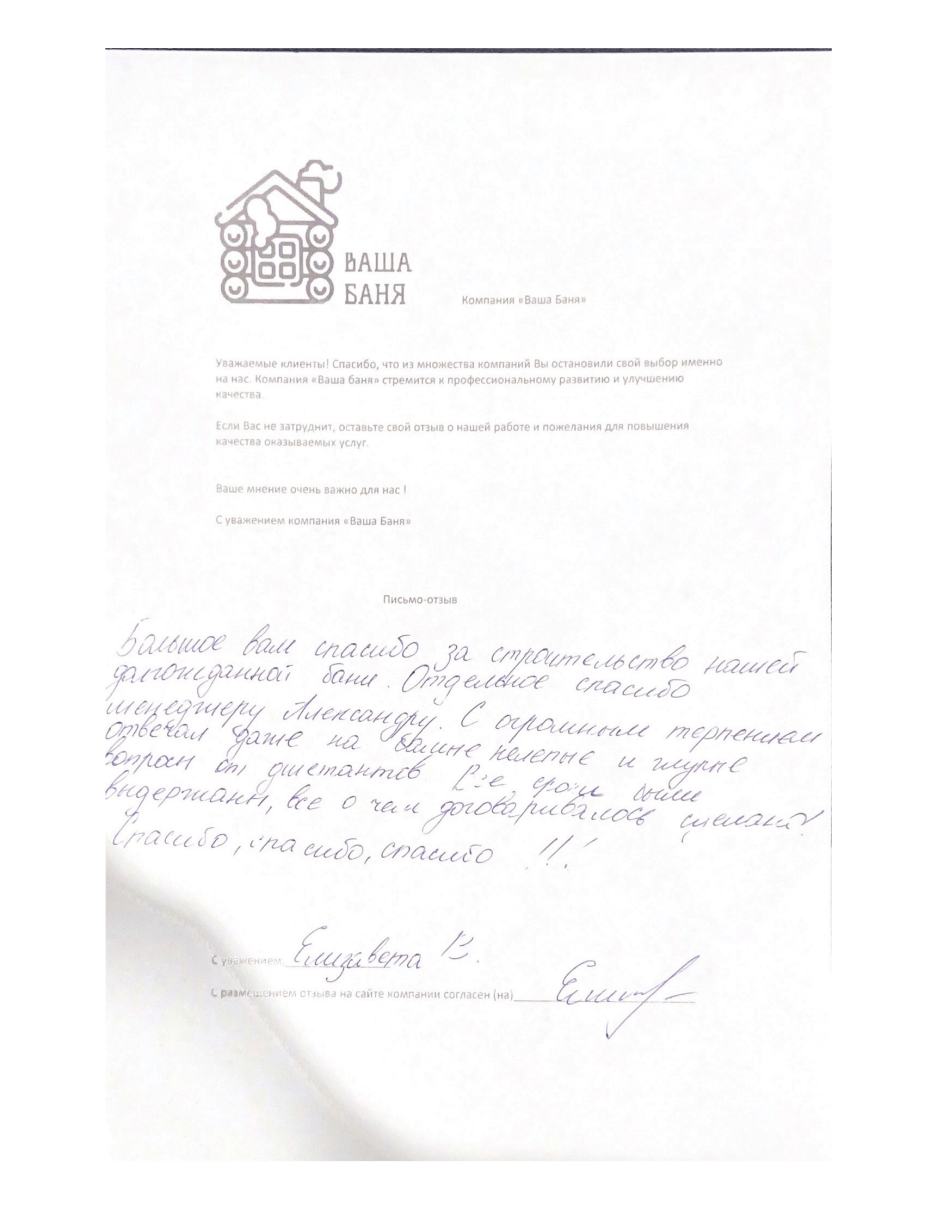 ВАША
БАНЯ
Компания «Ваша Баня»
Уважаемые клиенты! Спасибо, что из множества компаний Вы остановили свой выбор именно
на нас. Компания «Ваша баня» стремится к профессиональному развитию и улучшению
качества.
Если Вас не затруднит, оставьте свой отзыв о нашей работе и пожелания для повышения
качества оказываемых услуг.
Ваше мнение очень важно для нас !
С уважением компания «Ваша Баня»
Письмо-отзыв
Большое вам спасибо за строительство нашей
долгожданной бани. Отдельное спасибо
менеджеру Александру. С огромным терпением
отвечал даже на самые нелепые и глупые
вопросы от дилетантов Все сроки были
выдержаны, все о чем договаривалось сделано!
Спасибо, спасибо, спасибо !!!
С уважением, Елизавета В.
С размещением отзыва на сайте компании согласен (на)